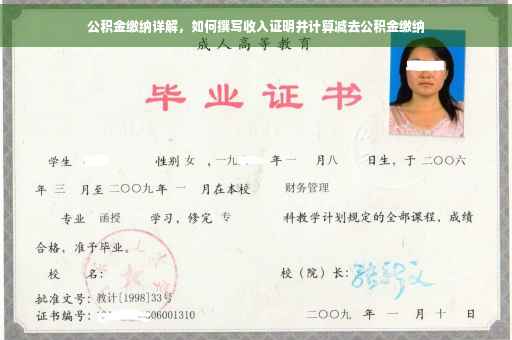 公积金缴纳详解，如何撰写收入证明并计算减去公积金缴纳
成人高等教育
毕业证书
学生 性别 女 ，一九 年 一 月八 日生，于 二〇〇六
年 三 月至 二〇〇九 年 一 月在本校 财务管理
专业 函授 学习，修完 专 科教学计划规定的全部课程，成绩
合格，准予毕业。
校 名： 校（院）长：
批准文号：教计[1998]33号
证书编号： 06001310 二〇〇九 年 一 月 十 日